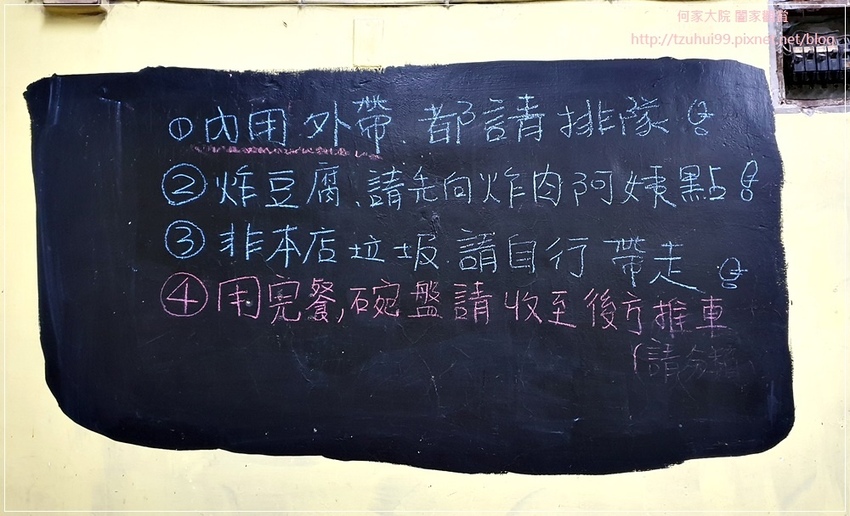 何家大院 闔家觀賞
http://tzuhui99.pixnet.net/blog
①內用外帶.都請排隊
②炸豆腐、請先向炸肉阿姨點
③非本店垃圾請自行帶走
④用完餐,碗盤請收至後方推車
(請分類